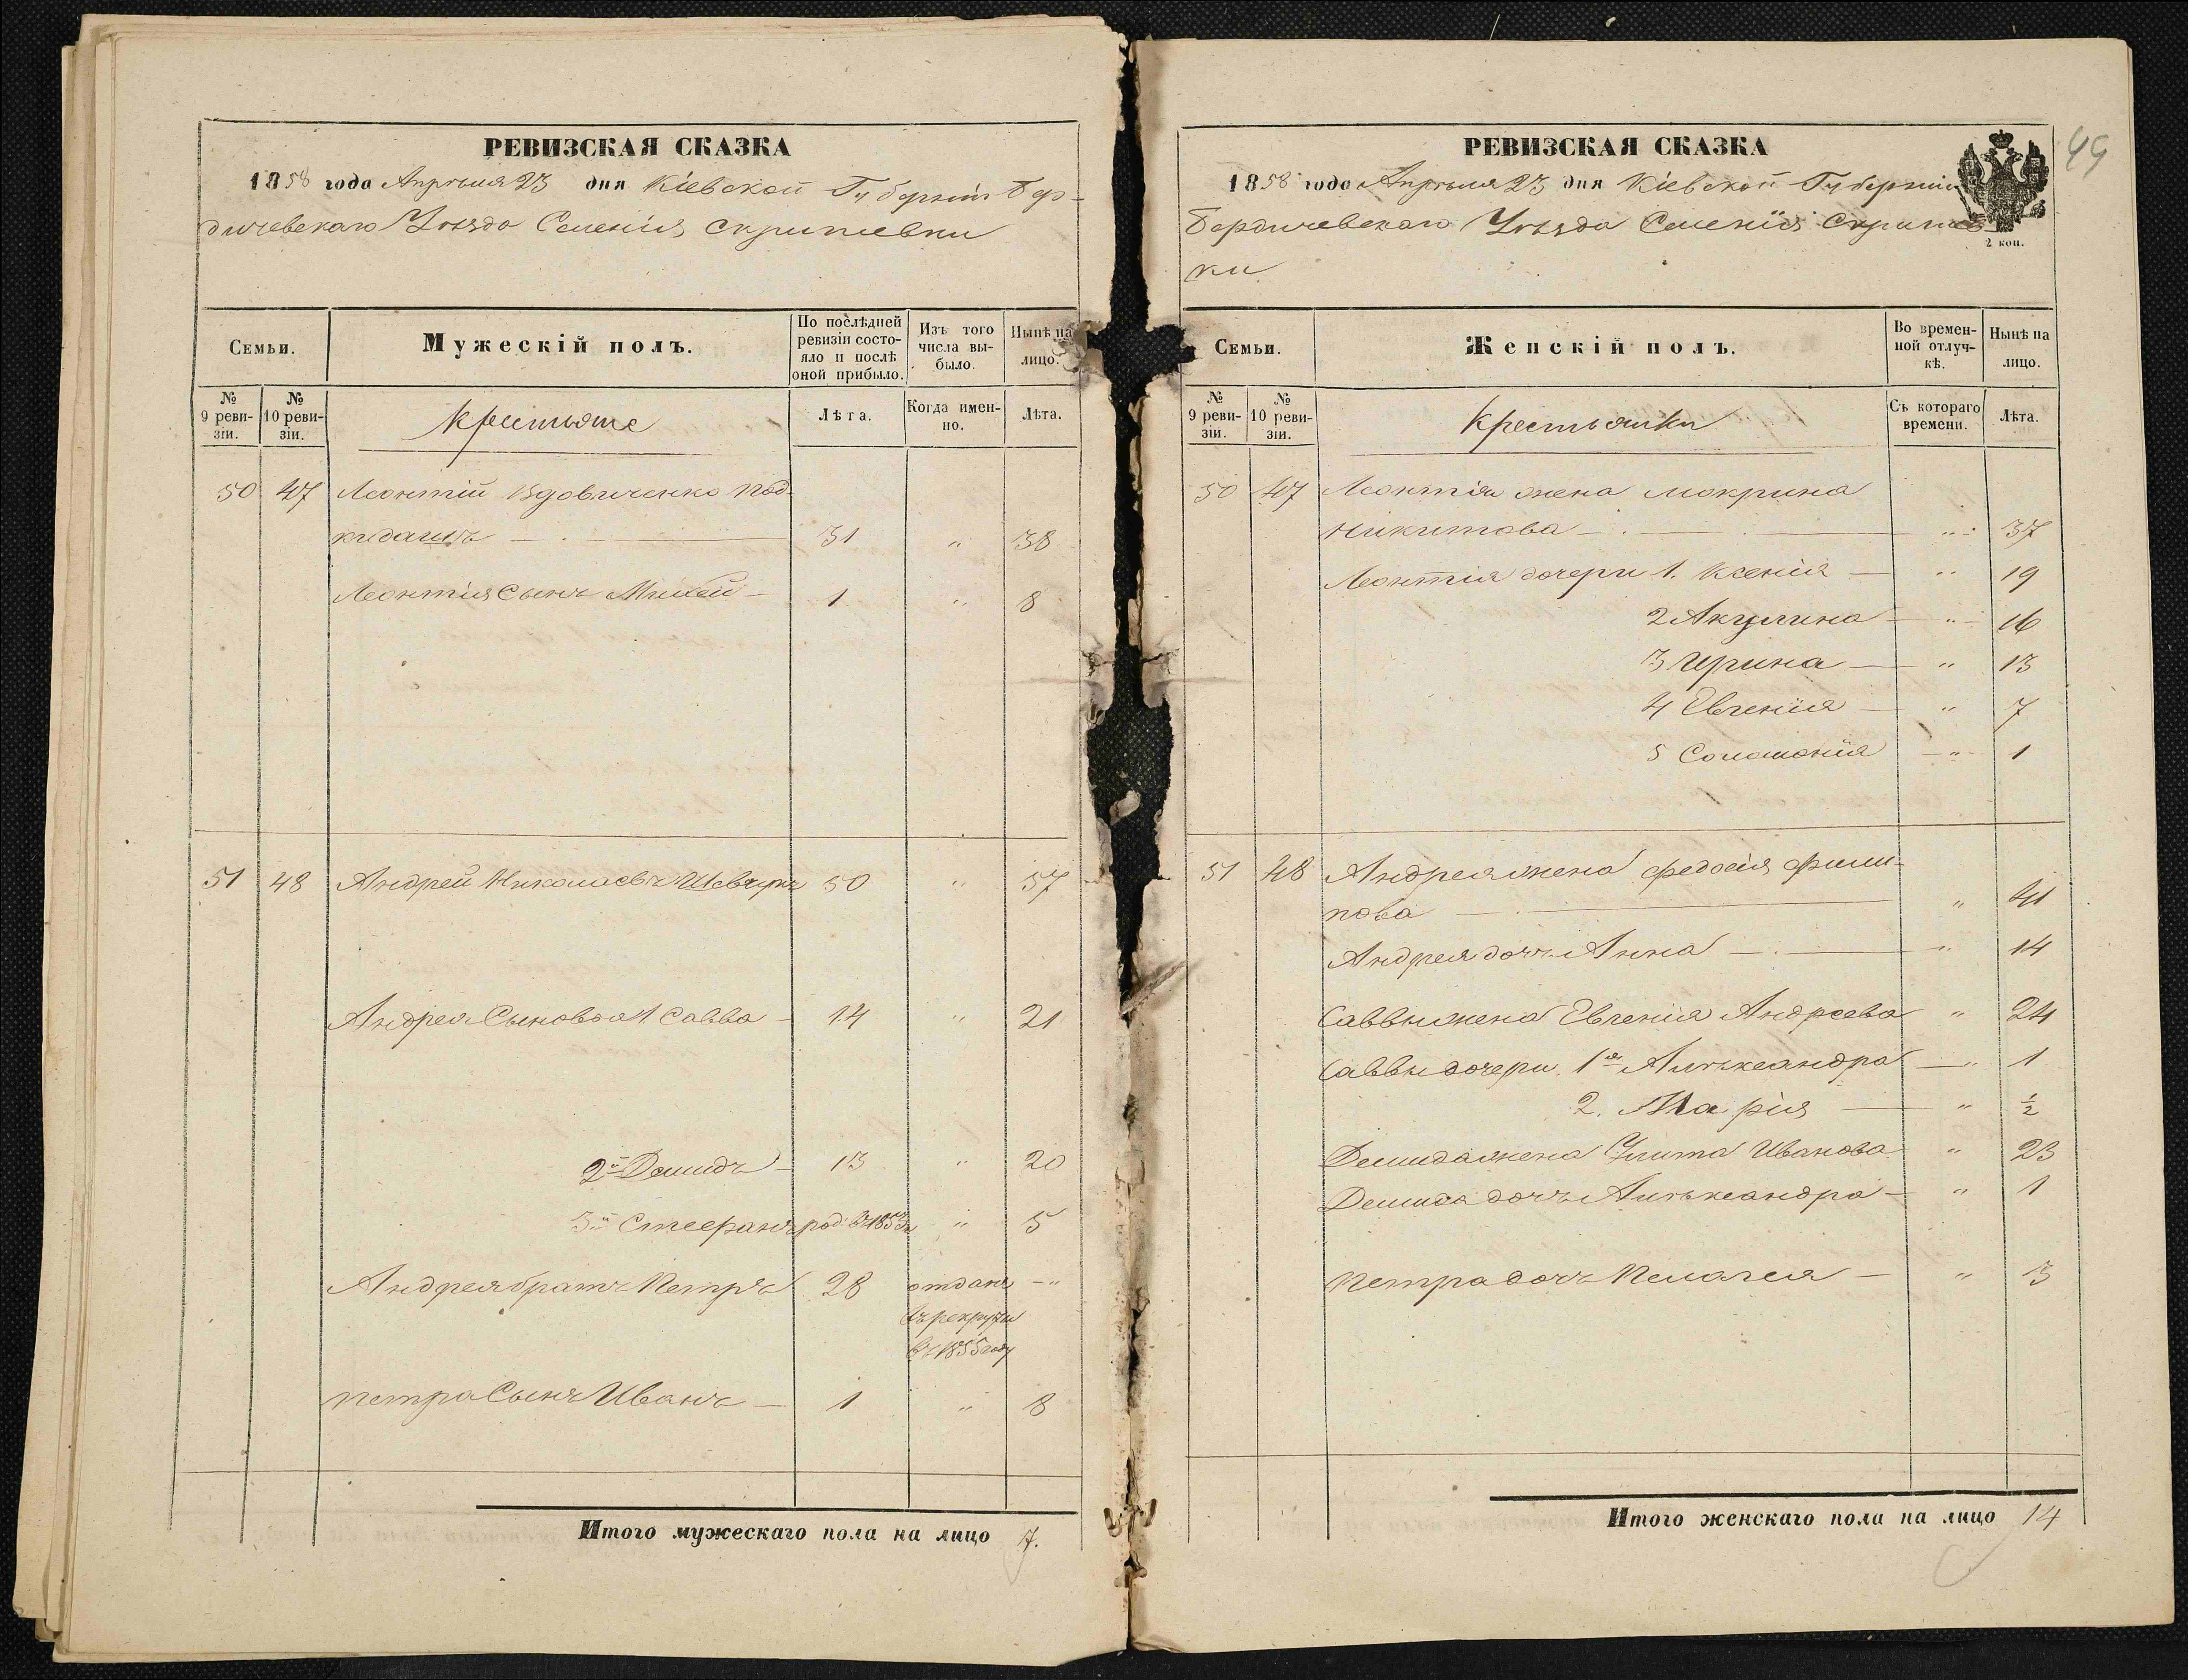 РЕВИЗСКАЯ СКАЗКА
1858 года Апрѣля 23 дня Кіевской Губерніи Бер-
дичевскаго Уѣзда Селенія Скрипиевки
Семьи.
Мужескій полъ.
По послѣдней ревизіи состояло и послѣ оной прибыло.
Изъ того числа выбыло.
Нынѣ на лицо.
№ 9 ревизіи.
№ 10 ревизіи.
Крестьяне
Лѣта.
Когда именно.
Лѣта.
50 47 Леонтій Вдовиченко под-
кидашъ 31 " 38
Леонтія Сынъ Михей 1 " 8
51 48 Андрей Николаевъ Шевчукъ 50 " 57
Андрея Сыновья 1 Савва 14 " 21
2й Демидъ 13 " 20
3й Стефанъ род. въ 1853 " 5
Андрея братъ Петръ 28 отданъ - "
въ рекруты
въ 1855 году
Петра Сынъ Иванъ 1 " 8
Итого мужескаго пола на лицо 7.
49
РЕВИЗСКАЯ СКАЗКА
1858 года Апрѣля 23 дня Кіевской Губерніи
Бердичевскаго Уѣзда Селенія
ки
2 коп.
Семьи.
Женскій полъ.
Во временной отлучкѣ.
Нынѣ на лицо.
№ 9 ревизіи.
№ 10 ревизіи.
Крестьянки
Съ котораго времени.
Лѣта.
50 47 Леонтія жена Мокрина
Никитова " 37
Леонтія дочери 1. Ксенія " 19
2 Акулина " 16
3 Ирина " 13
4 Евгенія " 7
5 Соломонія " 1
51 48 Андрея жена Федосія Фили-
пова " 41
Андрея дочь Анна " 14
Саввы жена Евгенія Андреева " 24
Саввы дочери 1я Алѣксандра " 1
2. Марія " ½
Демида жена Улита Иванова " 23
Демида дочь Алѣксандра " 1
Петра дочь Пелагея " 13
Итого женскаго пола на лицо 14